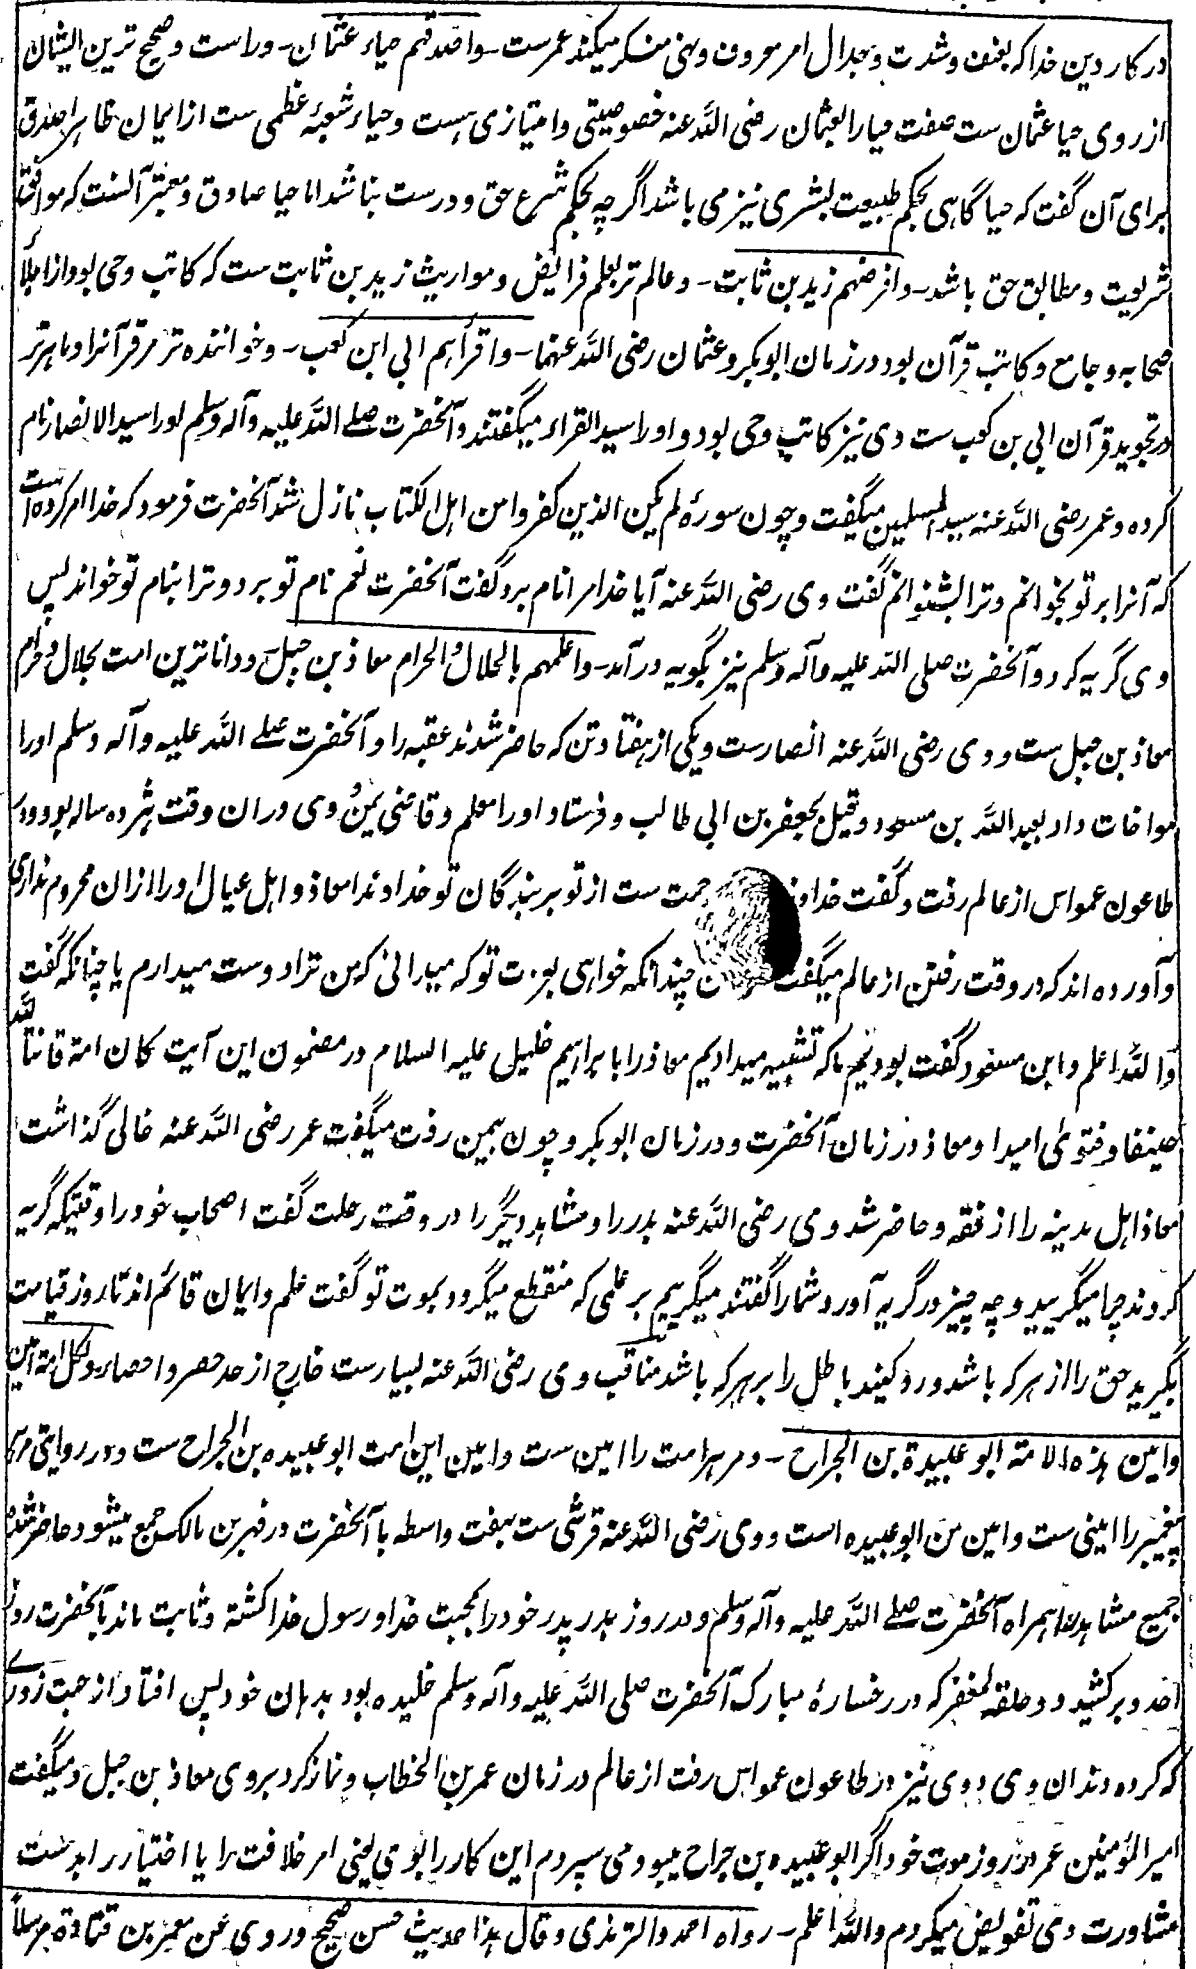 در کار دین خدا که بعنف و شدت و جدال امر معروف و نهی منکر میکند عمرست - واصدقهم حیاء عثمان - وراست و صحیح ترین ایشان
از روی حیا عثمان ست صفت حیا را بعثمان رضی الله عنه خصوصیتی و امتیازی هست و حیاء شعبهٔ عظمی ست از ایمان ظاهر اصدق
برای آن گفت که حیا گاهی بحکم طبیعت بشری نیز می باشد اگرچه بحکم شرع حق و درست نباشد اما حیا صادق و معتبر آنست که موافق
شریعت و مطابق حق باشد - وافرضهم زید بن ثابت - و عالم تر بعلم فرائض و مواریث زید بن ثابت ست که کاتب وحی بود و از اجلاء
صحابه و جامع و کاتب قرآن بود در زمان ابوبکر و عثمان رضی الله عنهما - واقرأهم ابی ابن کعب - و خواننده تر مر قرآنرا و ماهرتر
در تجوید قرآن ابی بن کعب ست وی نیز کاتب وحی بود و او را سید القراء میگفتند و آنحضرت صلے الله علیه وآله وسلم او را سید الانصار نام
کرده و عمر رضی الله عنه سید المسلمین میگفت و چون سورهٔ لم یکن الذین کفروا من اهل الکتاب نازل شد آنحضرت فرمود که خدا امر کرده است
که آنرا بر تو بخوانم و ترا بشنوانم گفت وی رضی الله عنه آیا خدا مرا نام برد گفت آنحضرت نعم نام تو برد و ترا بنام تو خواند پس
وی گریه کرد و آنحضرت صلی الله علیه وآله وسلم نیز بگریه در آمد - واعلمهم بالحلال والحرام معاذ بن جبل - و داناترین امت بحلال و حرام
معاذ بن جبل ست و وی رضی الله عنه انصارست و یکی از هفتاد تن که حاضر شدند عقبه را و آنحضرت صلے الله علیه وآله وسلم او را
مواخات داد بعبد الله بن مسعود و قیل بجعفر بن ابی طالب و فرستاد او را معلم و قاضی یمن و وی در ان وقت هژده ساله بود و در
طاعون عمواس از عالم رفت و گفت خداوند حمت ست از تو بر بندگان تو خداوندا معاذ و اهل عیال او را ازان محروم نداری
و آورده اند که در وقت رفتن از عالم میگفت چندانکه خواهی بعزت تو که میدانی که من ترا دوست میدارم یا چنانکه گفت
والله اعلم و ابن مسعود گفت بودیم ما که تشبیه میدادیم معاذ را بابراهیم خلیل علیه السلام در مضمون این آیت کان امة قانتا لله
حنیفا و فتوی امیدا و معاذ در زمان آنحضرت و در زمان ابوبکر و چون بیمن رفت میگفت عمر رضی الله عنه خالی گذاشت
معاذ اهل مدینه را از فقه و حاضر شد وی رضی الله عنه بدر را و مشاهد دیگر را در وقت رحلت گفت اصحاب خود را وقتیکه گریه
کردند چرا میگریید و چه چیز در گریه آورد شما را گفتند میگرییم بر علمی که منقطع میگردد بموت تو گفت علم و ایمان قائم اند تا روز قیامت
بگیرید حق را از هر که باشد و رد کنید باطل را بر هر که باشد مناقب وی رضی الله عنه بسیارست خارج از حد حصر و احصار - ولکل امة امین
وامین هذه الامة ابو عبیدة بن الجراح - و مر هر امت را امین ست و امین این امت ابو عبیده بن الجراح ست و در روایتی مر هر
پیغمبر را امینی ست و امین من ابو عبیده است و وی رضی الله عنه قرشی ست بهفت واسطه با آنحضرت در فهر بن مالک جمع میشود حاضر شده
جمیع مشاهد را همراه آنحضرت صلے الله علیه وآله وسلم و در روز بدر پدر خود را بجهت خدا و رسول خدا کشته و ثابت ماند بآنحضرت روز
احد و برکشید دو حلقه مغفر که در رخسارهٔ مبارک آنحضرت صلی الله علیه وآله وسلم خلیده بود بدهان خود پس افتاد از جهت زورے
که کرده دندان وی و وی نیز در طاعون عمواس رفت از عالم در زمان عمر بن الخطاب و نماز کرد بروی معاذ بن جبل و میگفت
امیر المؤمنین عمر در روز موت خود اگر ابو عبیده بن جراح میبود می سپردم این کار را بوی یعنی امر خلافت را یا اختیار را بدست
مشاورت وی تفویض میکردم والله اعلم - رواه احمد والترمذی وقال هذا حدیث حسن صحیح وروی عن معمر بن قتادة مرسلاً